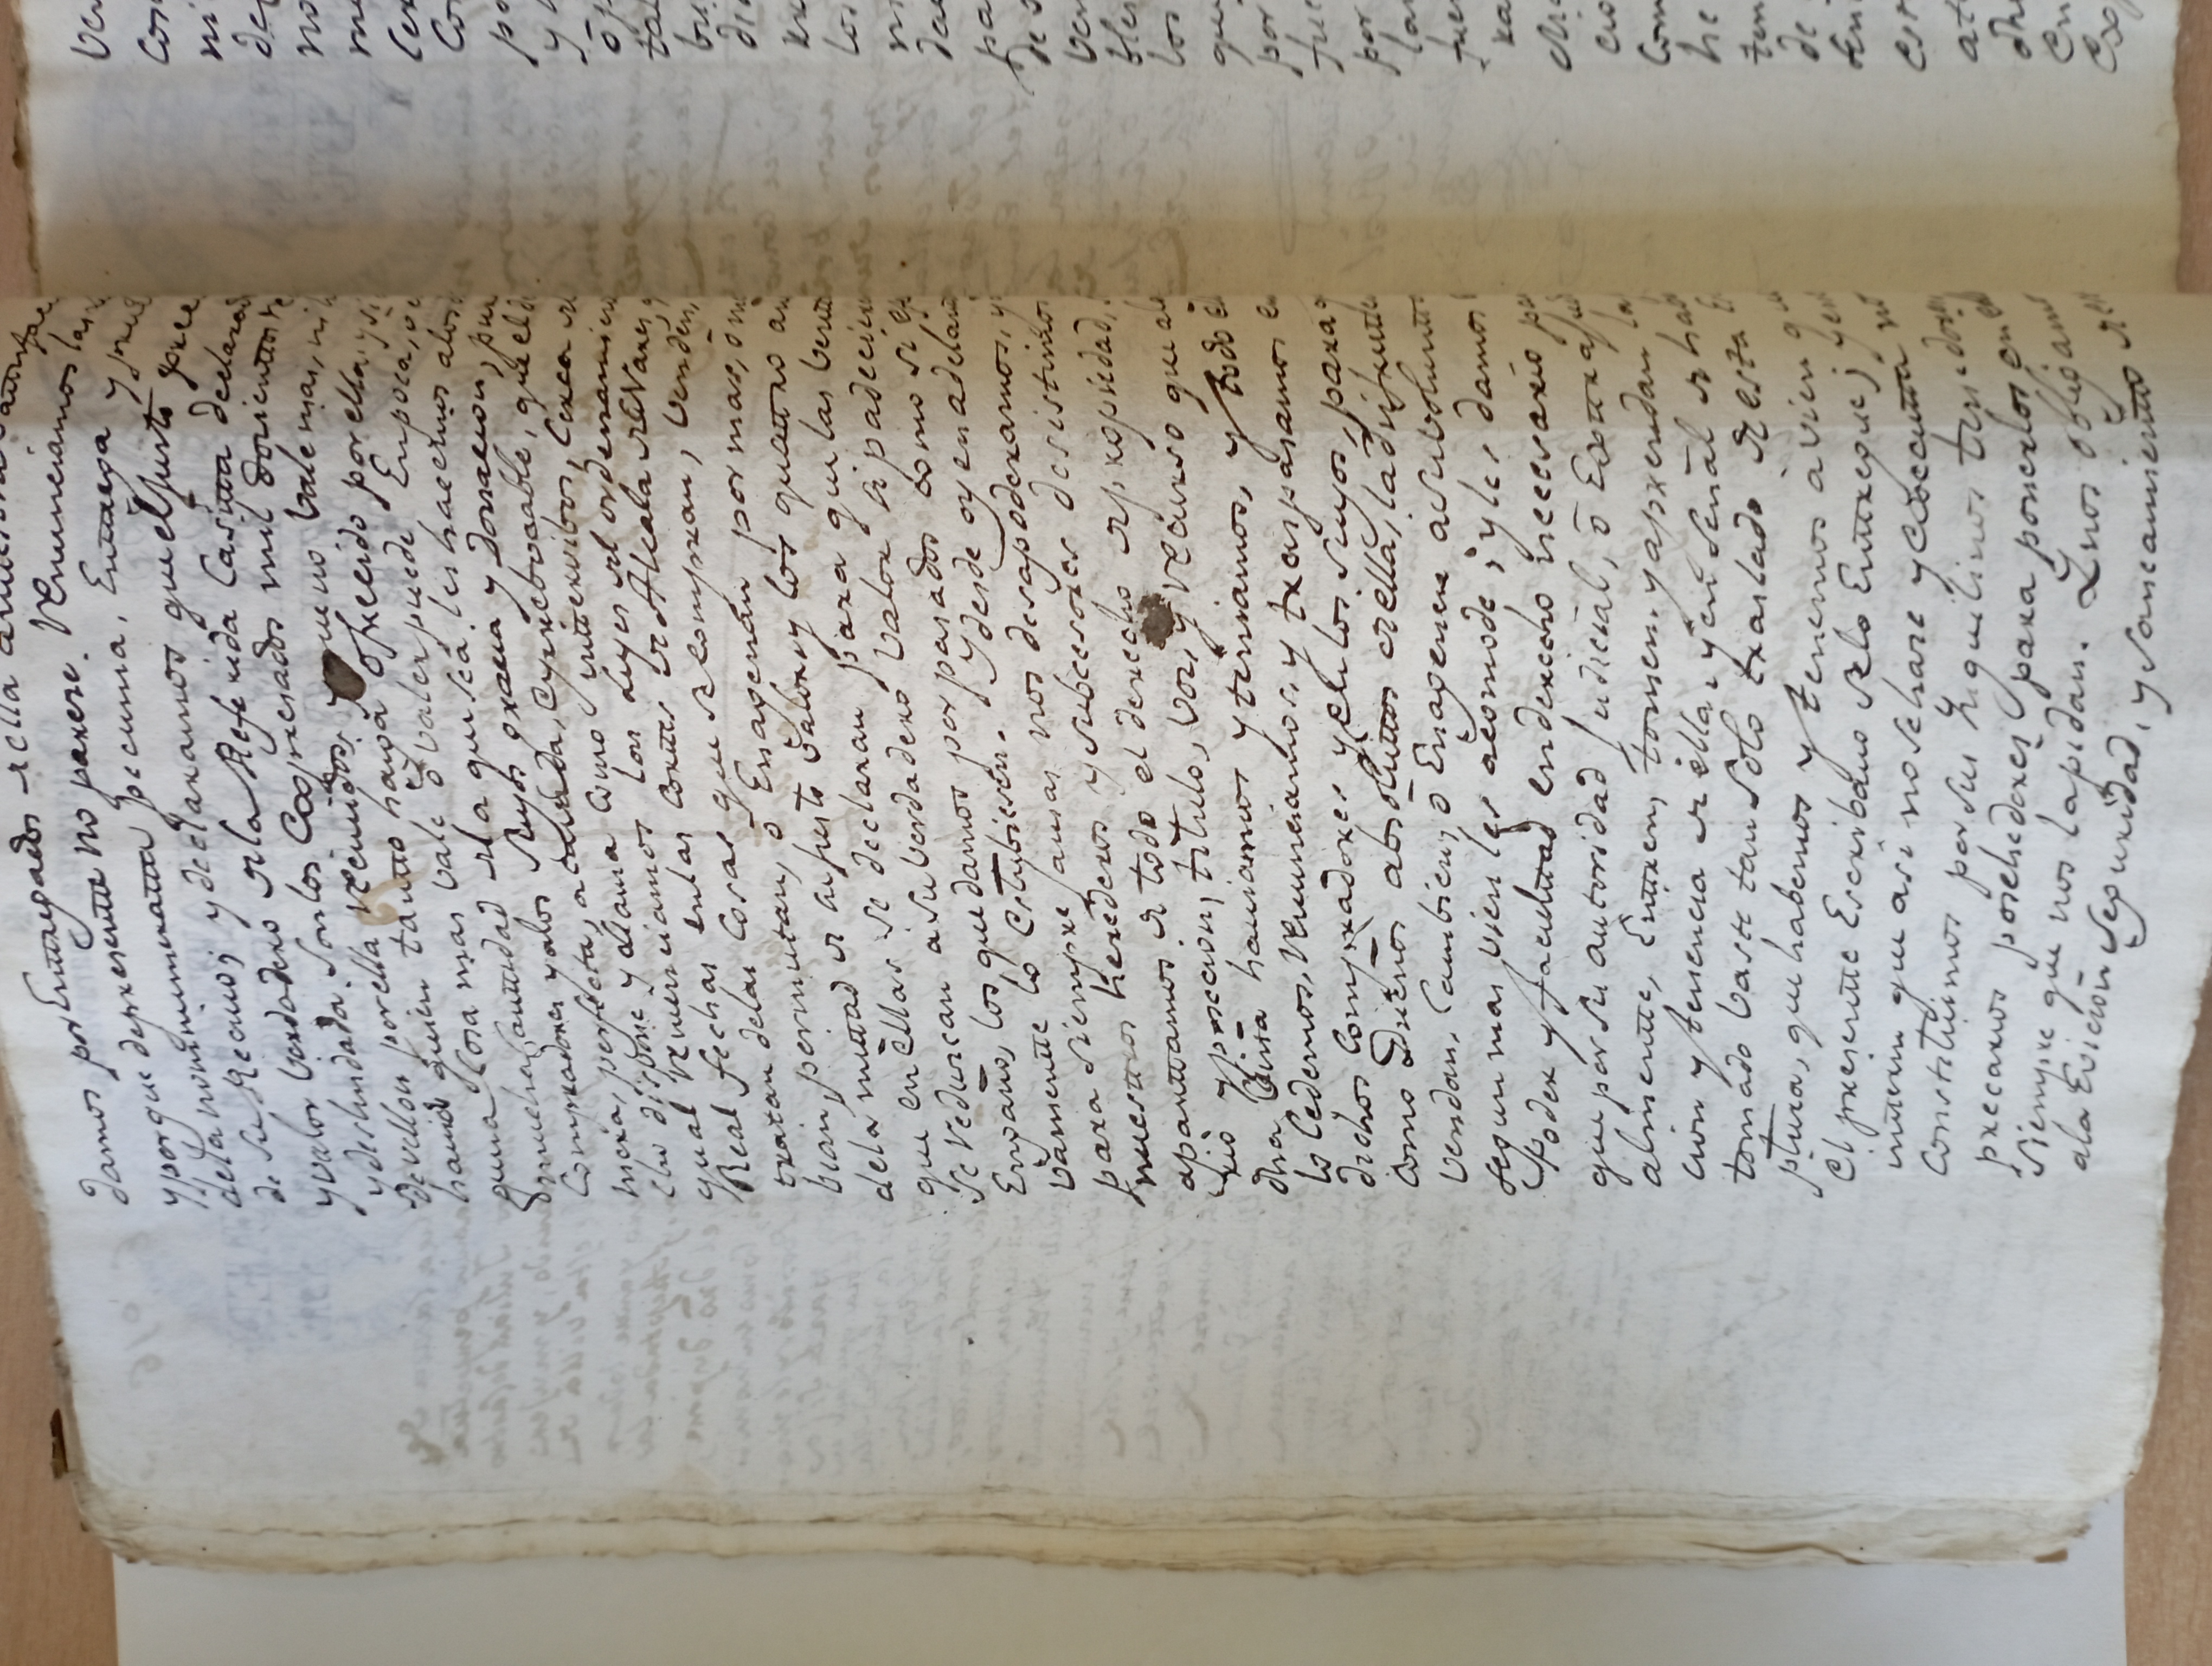 damos por Enttregados de ella
y porque depresentte no parexe Renunciamos las
dela nonnumeratta pecunia, Enttrega y prue
de su Recivo; y declaramos que el justo prec
y valor Verdadero de la Referida Casitta declarad
y deslindada son los Expresados mil docienttos re
de vellon por ella Recividos, y que no Vale mas, ni h
havido quien tantto haiga ofrecido por ella, y si
guna Cosa mas Vale ō Valer puede, En poca, ō
mucha Canttidad de la que sea les hacemos alos
Compradores y alos suyos gracia y donacion, pu
mera, perfecta, acavada, eyrrebocable, que el d
cho dispone y llama como inttervibos, Cerca de
qual Renunciamos las Leyes del ordenamien
Real fechas enlas Corttes de Alcala de Nares, q
tratan delas Cosas que se compran, Venden,
bian, permutan, ō Enagenan por mas, ō m
dela mittad de su justo valor, y los quattro añ
que en ellas se declaran para que las Ventt
se Reduzcan á su Verdadero Valor si padecier
Engaño, los que damos por pasados como si efe
vamentte lo Estubiesen. Y desde oy en adelan
para siempre Jamas nos desapoderamos, y
nuesttros herederos y subcesores desistimos
aparttamos de todo el derecho de propiedad,
rio y poseción, titulo, Voz, y Recurso que a
dha Casitta haviamos y teniamos, y todo
lo Cedemos, Renunciamos, y traspasamos en
dichos Compradores y en los suyos, para q
Como Dueños absoluttos de ella, la disfrutte
Vendan, Cambien, ō Enagenen ásu Voluntt
segun mas vien les acomode; y les damos
Poder y facultad en derecho necesario pa
que por su autoridad Judicial, ō Exttrajud
almentte, Enttren, tomen, y aprendan la
cion y tenencia de ella, y en señal de hab
tomado baste tan solo traslado de esta E
ptura, que habemos y tenemos á vien qu
El presentte Escribano selo Enttregue; y en
intterin que asi no se hace y Executta no
Constituimos por sus Ynquilinos tenedores
precarios posehedores para ponerlos en
siempre que nos la pidan. Y nos obligamos
ala Evición seguridad, y saneamientto de